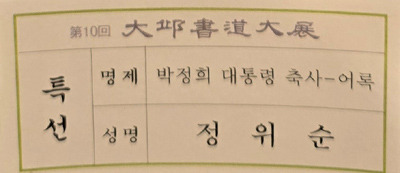 第10回 大邱書道大展
특선
명제 박정희 대통령 축사-어록
성명 정 위 순